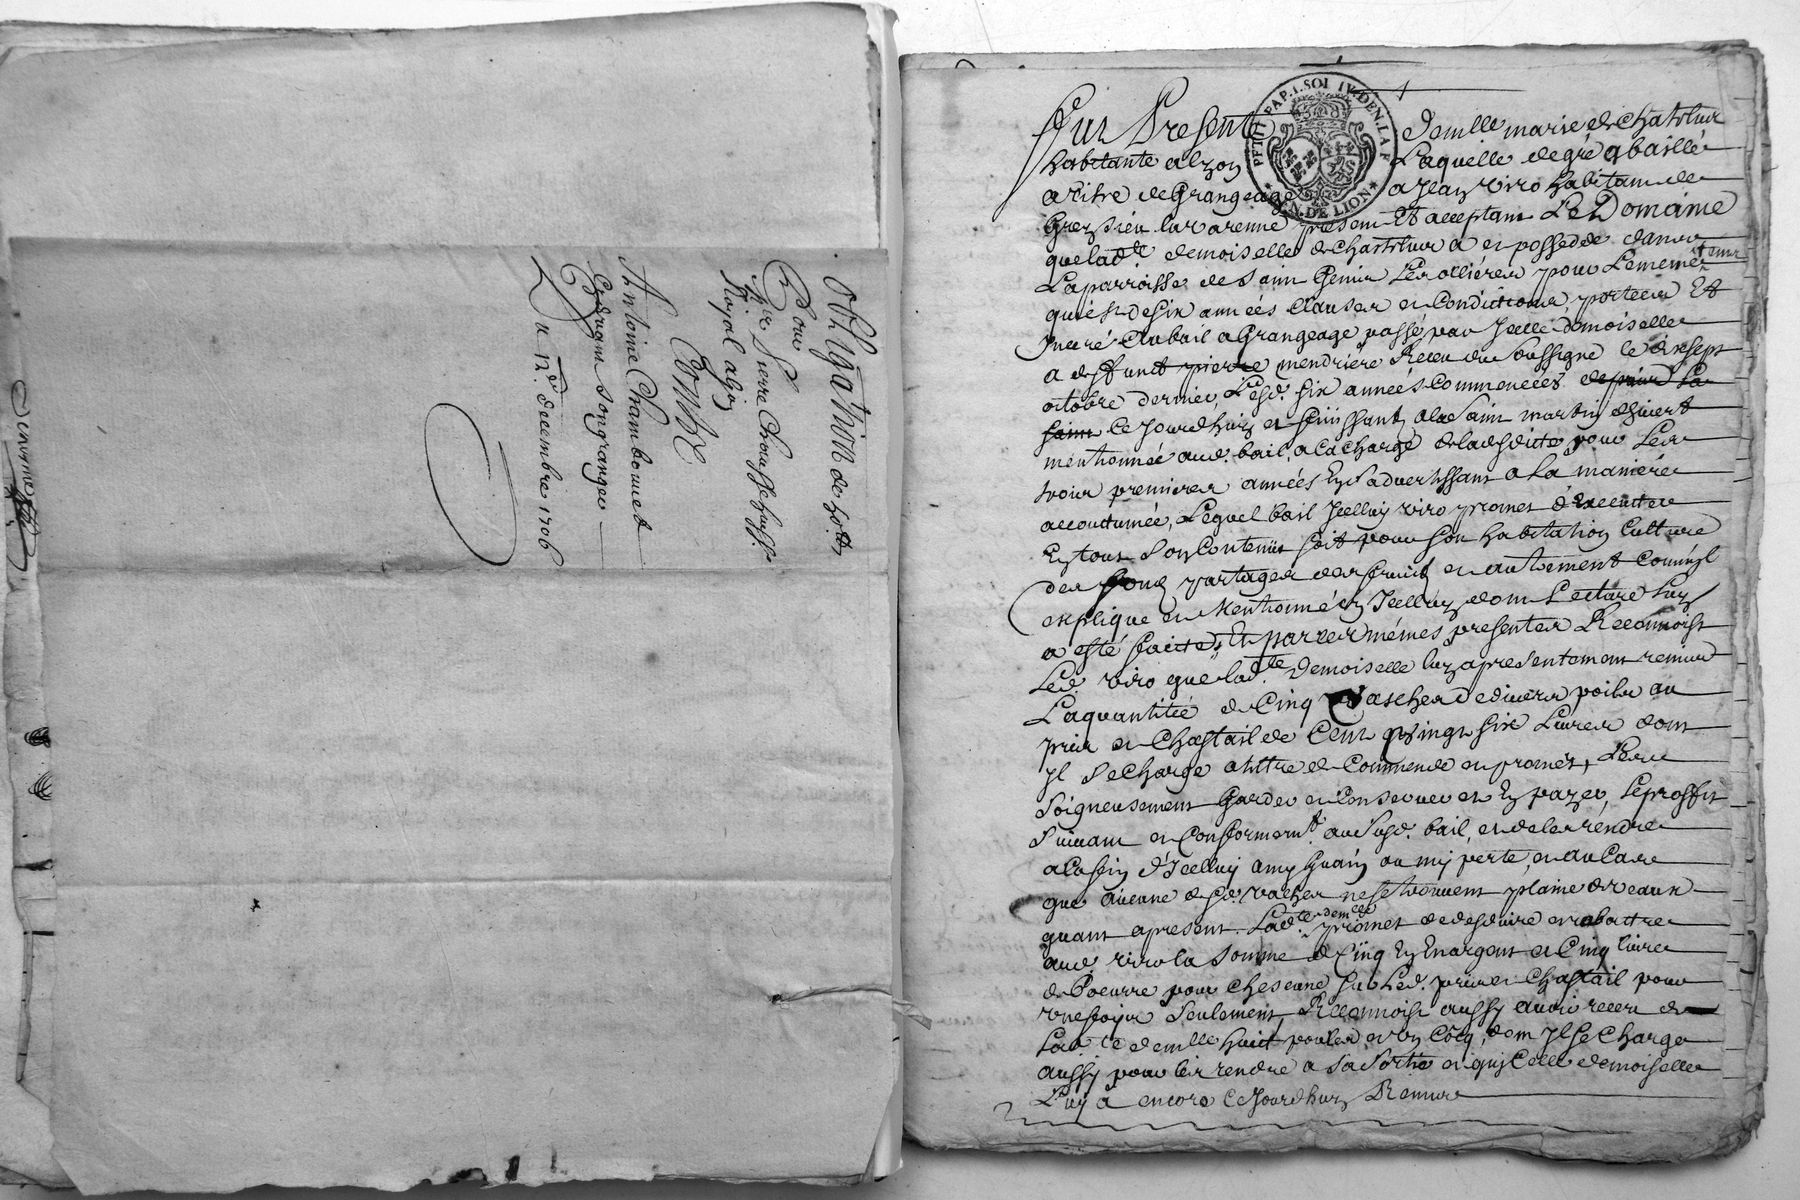 Obligation de 20 tt
Pour
Sr. Pierre Chaussebuyss.
Royal alzon
Contre
Antoine Chambonnet
Et Jean Songranger
Du 12.e decembre 1706
PETIT PAP. I. SOL IV. DEN. LA F
GEN. DE LION
Fut Presente Demlle marie de Chatelur
habitante alzon Laquelle de gré a baillé
a titre de Grangeage a Jean viro habitant de
Grezieu la varenne present Et acceptant Le Domaine
que lad.te demoiselle de Chatelur a et possede dans
La parroisse de saint Genis Les ollières pour Le meme temps
qui est de six années Clauses et Conditions portées Et
Inceré au bail a Grangeage passé par Icelle demoiselle
a deffunct pierre mendriere Receu du soussigné le dixsept
octobre dernier, Lesd. six années Commencées depuis La
saint Ce Jourdhuy et finissant a la Saint martin dhivert
mentionnée aud. bail, a la Charge de la desditte pour Les
trois premieres années En S'advertissant a la maniere
accoutumée, Lequel bail Icelluy viro promet d'Executer
En tout son Contenu soit pour son habitation Culture
des fonds partages des fruits et autrement Comm'yl
explique et Mentionné En Icelluy dont Lecture luy
a esté faitte, Et par ces mémes presentes Reconnoist
Led. viro que lad.te Demoiselle luy a presentement remis
La quantitée de Cinq vasches de divers poils au
prix et Chastail de Cent vingt six Livres dont
Il se Charge a tittre de Commende et promet, Les
soigneusement Garder et Conserver et En payer, le proffit
suivant et Conformemt. au susd. bail, et de les rendre
a la fin d'Icelluy a my Guain ou my perte, et au Cas
que aucune desd. vaches ne se trouvent plaine de veaux
quant apresent. Lad.te dem.elle promet de desduire et rabattre
aud. viro la somme de Cinq En Enargent et Cinq livres
de Poeurre pour Chescune sur Led. prix et Chastail pour
une foys Seulement, Reconnoist aussy avoir receu de
Lad.te demlle huict poules et un Cocq, dont Il se Charge
aussy pour les rendre a sa sortie et qu'Icelle demoiselle
Luy a encore Ce Jourdhuy Remis